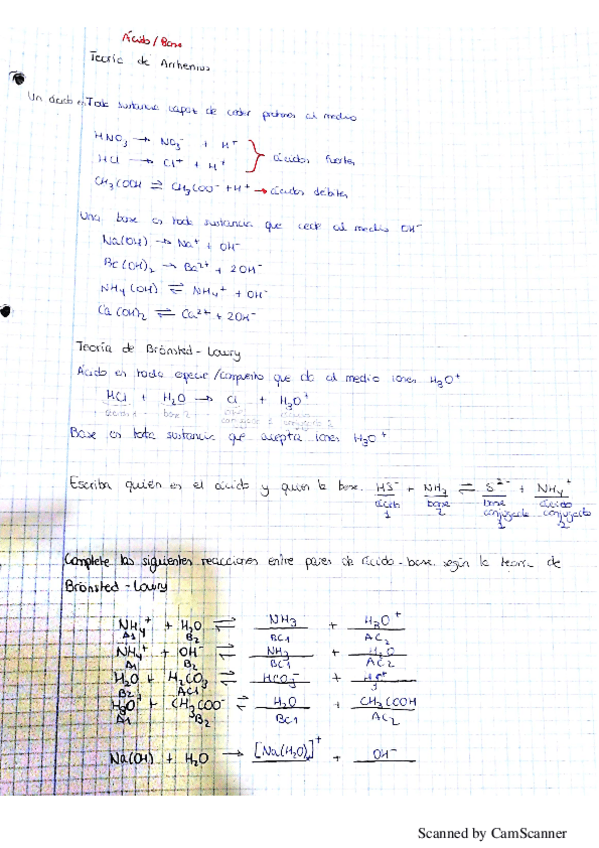 Ácido/Base
Teoría de Arrhenius
Un ácido es Toda sustancia capaz de ceder protones al medio
HNO₃ → NO₃⁻ + H⁺
HCl → Cl⁺ + H⁺ } ácidos fuertes
CH₃COOH ⇌ CH₃COO⁻ + H⁺ → ácidos débiles
Una base es toda sustancia que cede al medio OH⁻
Na(OH) → Na⁺ + OH⁻
Ba(OH)₂ → Ba²⁺ + 2OH⁻
NH₄(OH) ⇌ NH₄⁺ + OH⁻
Ca(OH)₂ ⇌ Ca²⁺ + 2OH⁻
Teoría de Brönsted-Lowry
Ácido es toda especie/compuesto que da al medio iones H₃O⁺
HCl + H₂O → Cl + H₃O⁺
Base es toda sustancia que acepta iones H₃O⁺
Escriba quién es el ácido y quien la base. HS⁻ + NH₃ ⇌ S²⁻ + NH₄⁺
ácido 1 base 2 base conjugada 1 ácido conjugado 2
Complete las siguientes reacciones entre pares de ácido-base según la teoría de
Brönsted-Lowry
NH₄⁺ + H₂O ⇌ NH₃ + H₃O⁺
A1 B2 BC1 AC2
NH₄⁺ + OH⁻ ⇌ NH₃ + H₂O
A1 B2 BC1 AC2
H₂O + H₂CO₃ ⇌ HCO₃⁻ +
B2 AC1
H₃O⁺ + CH₃COO⁻ ⇌ H₂O + CH₃COOH
A1 B2 BC1 AC2
Na(OH) + H₂O → [Na(H₂O)]⁺ + OH⁻
Scanned by CamScanner